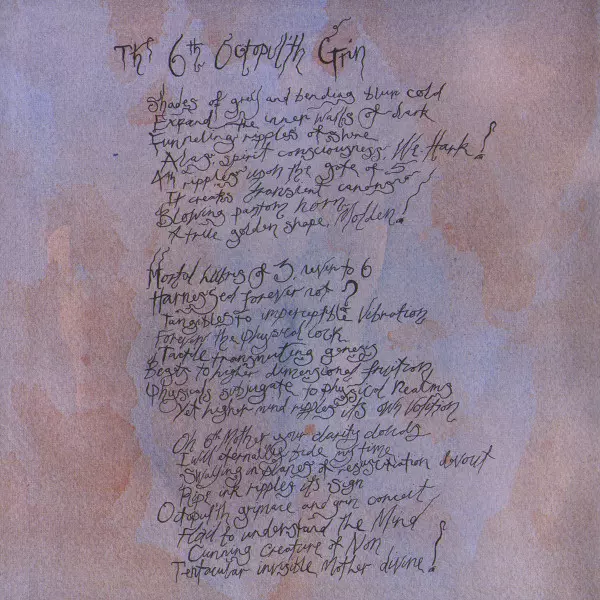 The 6th Octopulith Grin
Shades of grey and bending blum cold
Expand the inner walls of dark
Funneling ripples of shine
A lage spirit consciousness, We Hark!
4th ripples upon the gate of 5
It creates transient
Blowing fantom horn
A true golden shape, Molden!
Mortal hubris of 3, never to 6
Harnessed forever not?
Tangibles to imperceptible Vibration
Forever the Physical lock
Tactile transmuting genesis
Begets to higher dimensional fruition
Physicals subjugate to physical Realms
Yet higher mind ripples it's own Volition
Oh 6th Mother your clarity clouds
I will eternally bide my time
Swalling in planes of resuscitation devout
Ripe ink ripples it's sign
Octopulith grimace and grin conceit
Flad to understand the Mind
Cunning Creature of Non
Tentacular invisible Mother divine!